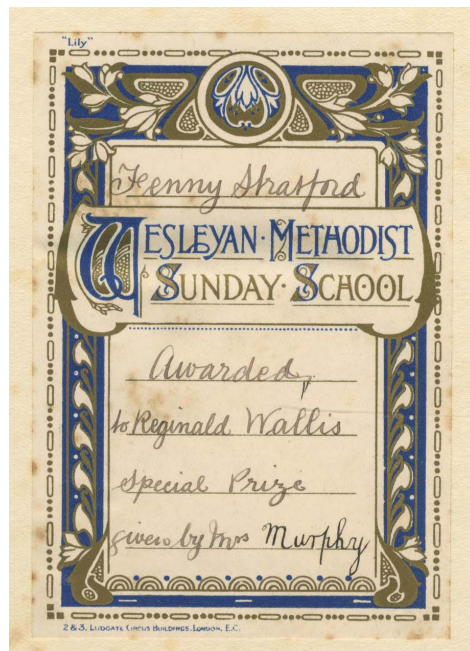 "Lily"
Fenny Stratford
WESLEYAN·METHODIST
SUNDAY·SCHOOL
Awarded,
to Reginald Wallis
Special Prize
given by Mrs Murphy
2 & 3, LUDGATE CIRCUS BUILDINGS, LONDON, E.C.